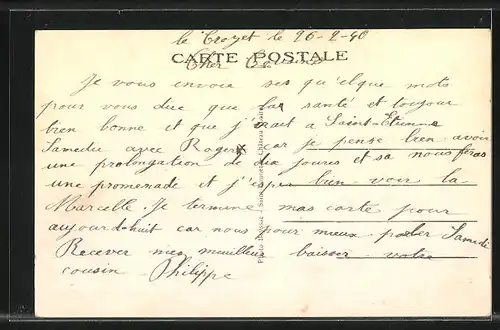 le Crozet le 26-2-40
CARTE POSTALE
Cher Cousine
Je vous envoie ses qu'elque mots
pour vous dire que la santé et toujour
bien bonne et que j'irait a Saint-Etienne
Samedie avec Roger car je pense bien avoir
une prolongation de dix joures et sa nous feras
une promenade et j'espere bien voir la
Marcelle. Je termine mas carte pour
aujourd-huit car nous pour mieux parler Samedi
Recever mes meuilleur baisser votre
cousin Philippe